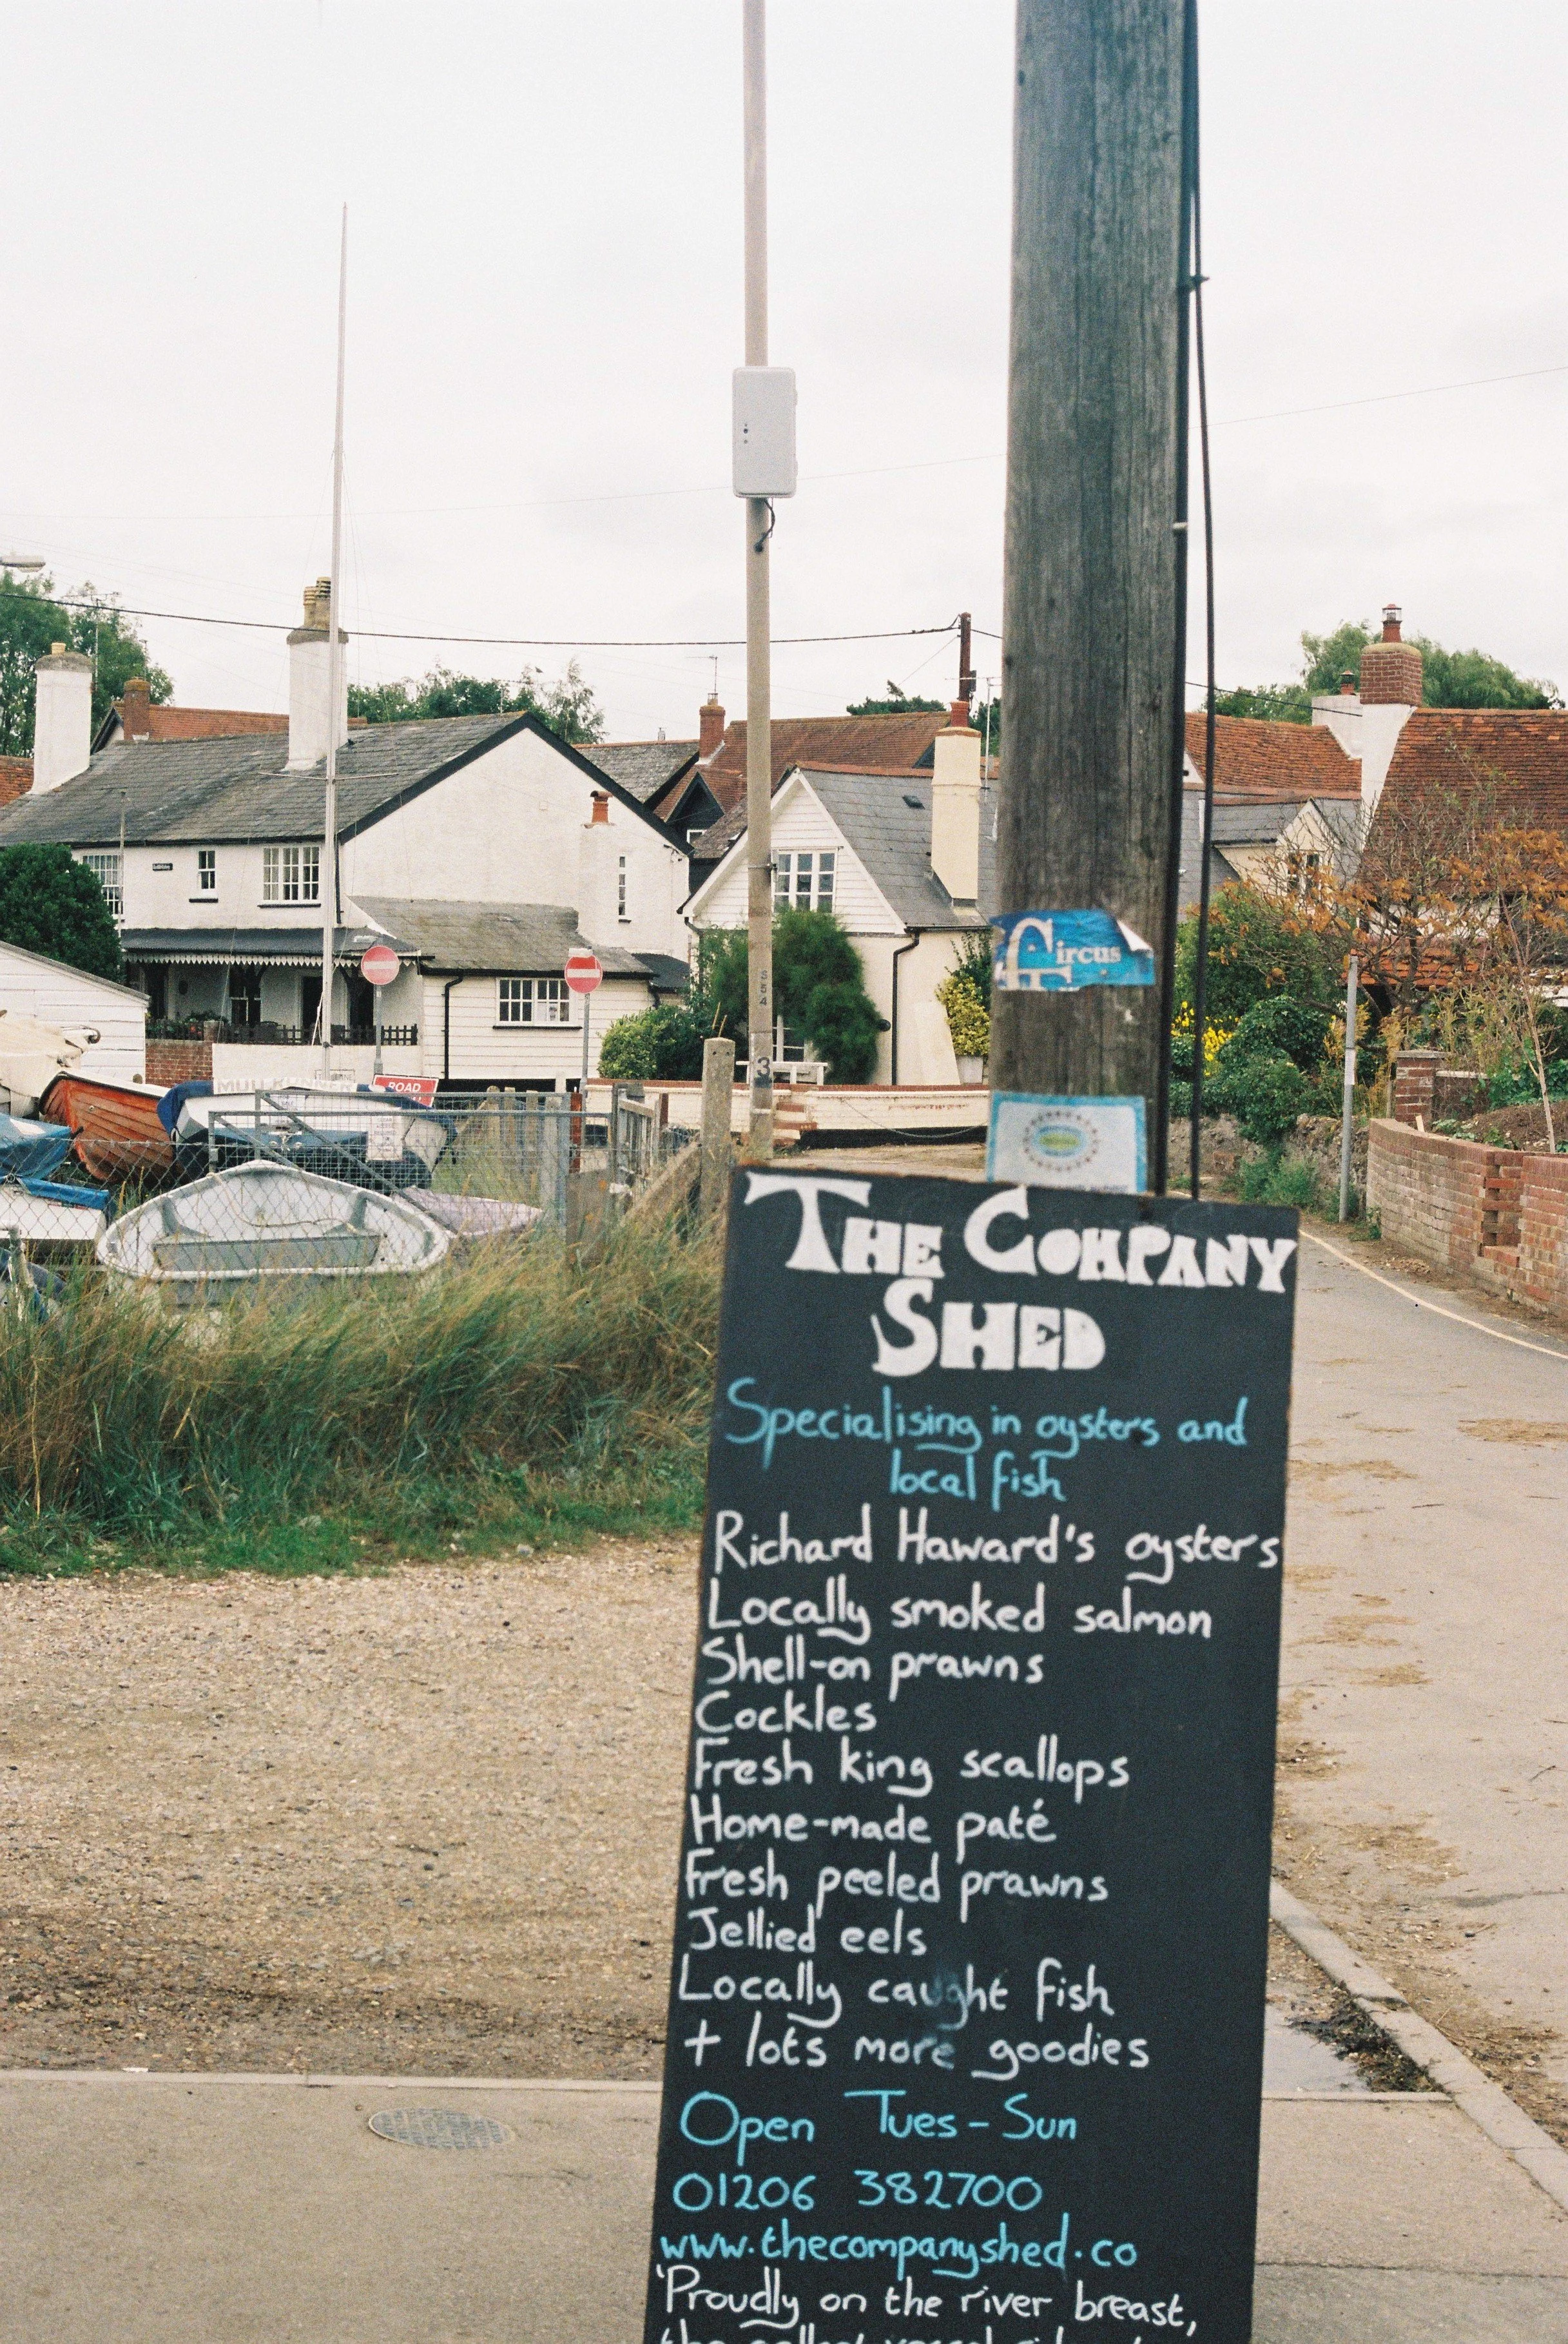 Circus
S54
3
ROAD
THE COMPANY
SHED
Specialising in oysters and
local fish
Richard Haward's oysters
Locally smoked salmon
Shell-on prawns
Cockles
Fresh king scallops
Home-made paté
Fresh peeled prawns
Jellied eels
Locally caught fish
+ lots more goodies
Open Tues-Sun
01206 382700
www.thecompanyshed.co
'Proudly on the river breast,